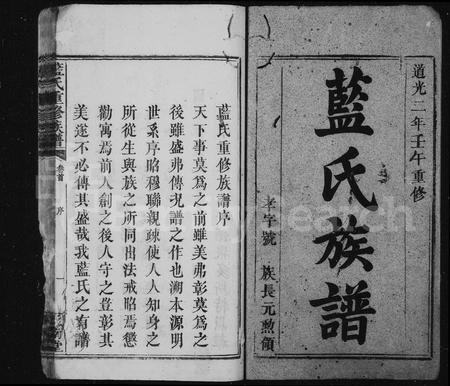 道光二年壬午重修
藍氏族譜
孝字號 族長元勲領
藍氏重修族譜序
天下事莫爲之前雖美弗彰莫爲之
後雖盛弗傳况譜之作也溯本源明
世系序昭穆聯親疎使人人知身之
所從生與族之所同出法戒昭焉懲
勸寓焉前人創之後人守之豈彰其
美遂不必傳其盛哉我藍氏之有譜
藍氏重修族譜
卷首 序 一